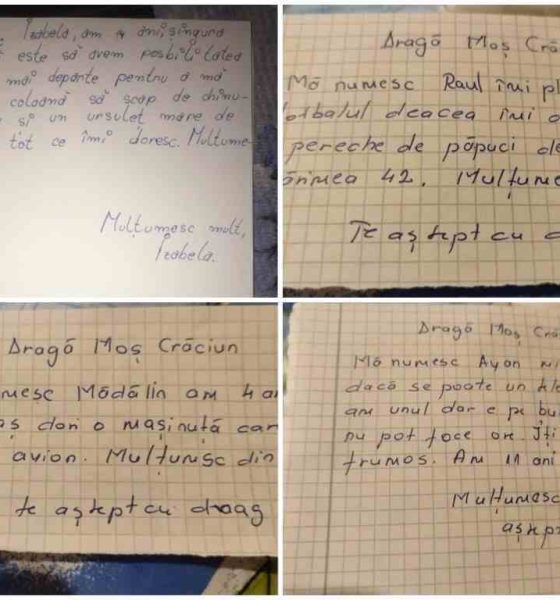 Izabela, am 4 ani, singura
este să avem posibilitatea
mai departe pentru a mă
coloană să scap de chinu-
și un ursuleț mare de
tot ce îmi doresc. Mulțume-
Mulțumesc mult,
Izabela.
Dragă Moș Cră
Mă numesc Raul îmi pl
fotbalul deacea îmi d
pereche de păpuci de
mărimea 42. Mulțume
Te aștept cu d
Dragă Moș Crăciun
mesc Mădălin am 4 an
aș dori o mașinuță car
avion. Mulțumsc din
te aștept cu drag
Dragă Moș Cră
Mă numesc Ayan
dacă se poate un
am unul dar e pe bu
nu pot face on. Îți
frumos. Am 11 ani
Mulțumesc
aștept